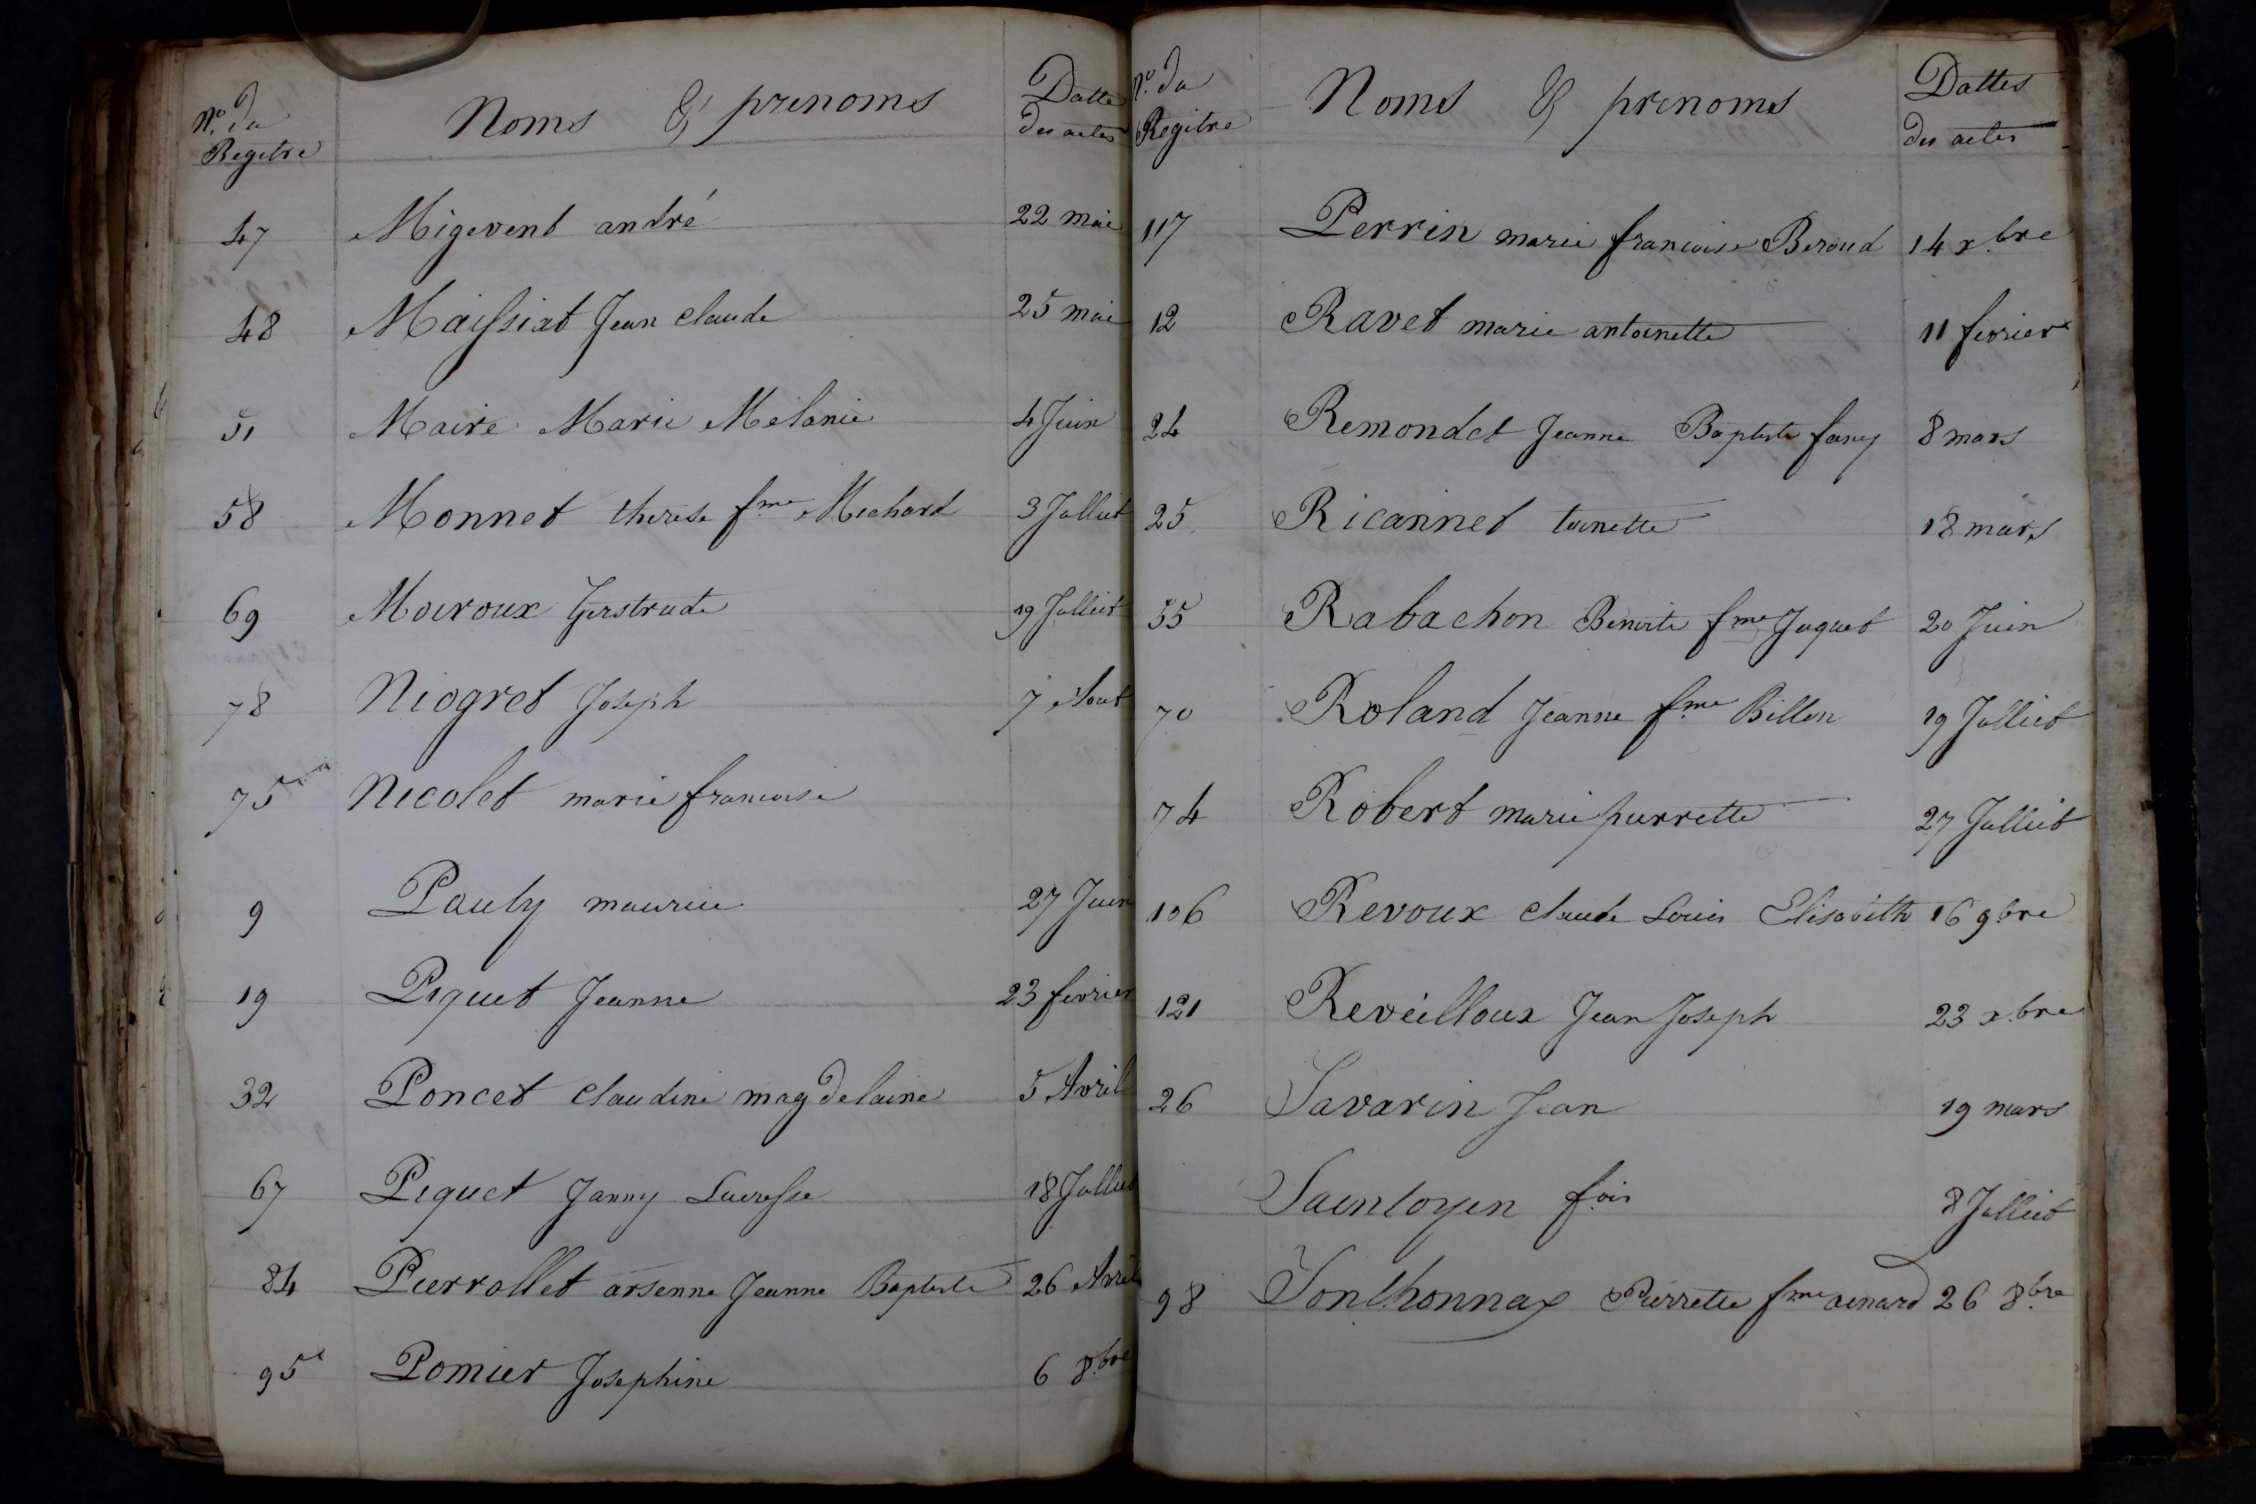 N.o du
Regitre
Noms & prenoms
Datte
des actes
47 Migevent andré 22 mai
48 Maissiat Jean claude 25 mai
51 Maire Marie Melanie 4 Juin
58 Monnet therese fme Michard 3 Julliet
69 Moiroux Gerstrude 19 Julliet
78 Niogret Joseph 7 Aout
75 Nicolet marie francoise
9 Pauly maurice 27 Juin
19 Piquet Jeanne 23 fevrier
32 Poncet claudine magdelaine 5 Avril
67 Piquet Janny Lucresse 18 Julliet
84 Pierrollet arsenne Jeanne Baptiste 26 Avril
95 Pomier Josephine 6 8.bre
N.o du
Regitre
Noms & prenoms
Dattes
des actes
117 Perrin marie francoise Beroud 14 x.bre
12 Ravet marie antoinette 11 fevrier
24 Remondet Jeanne Baptiste fany 8 mars
25 Ricannet toinette 18 mars
55 Rabachon Benoite fme Juquet 20 Juin
70 Roland Jeanne fme Billon 19 Julliet
74 Robert marie pierrette 27 Julliet
106 Revoux claude Louis Elisabeth 16 9.bre
121 Reveilloux Jean Joseph 23 x.bre
26 Savarin Jean 19 mars
Saintoyen fois 8 Julliet
98 Sonthonnax Pierrette fme ainard 26 8.bre